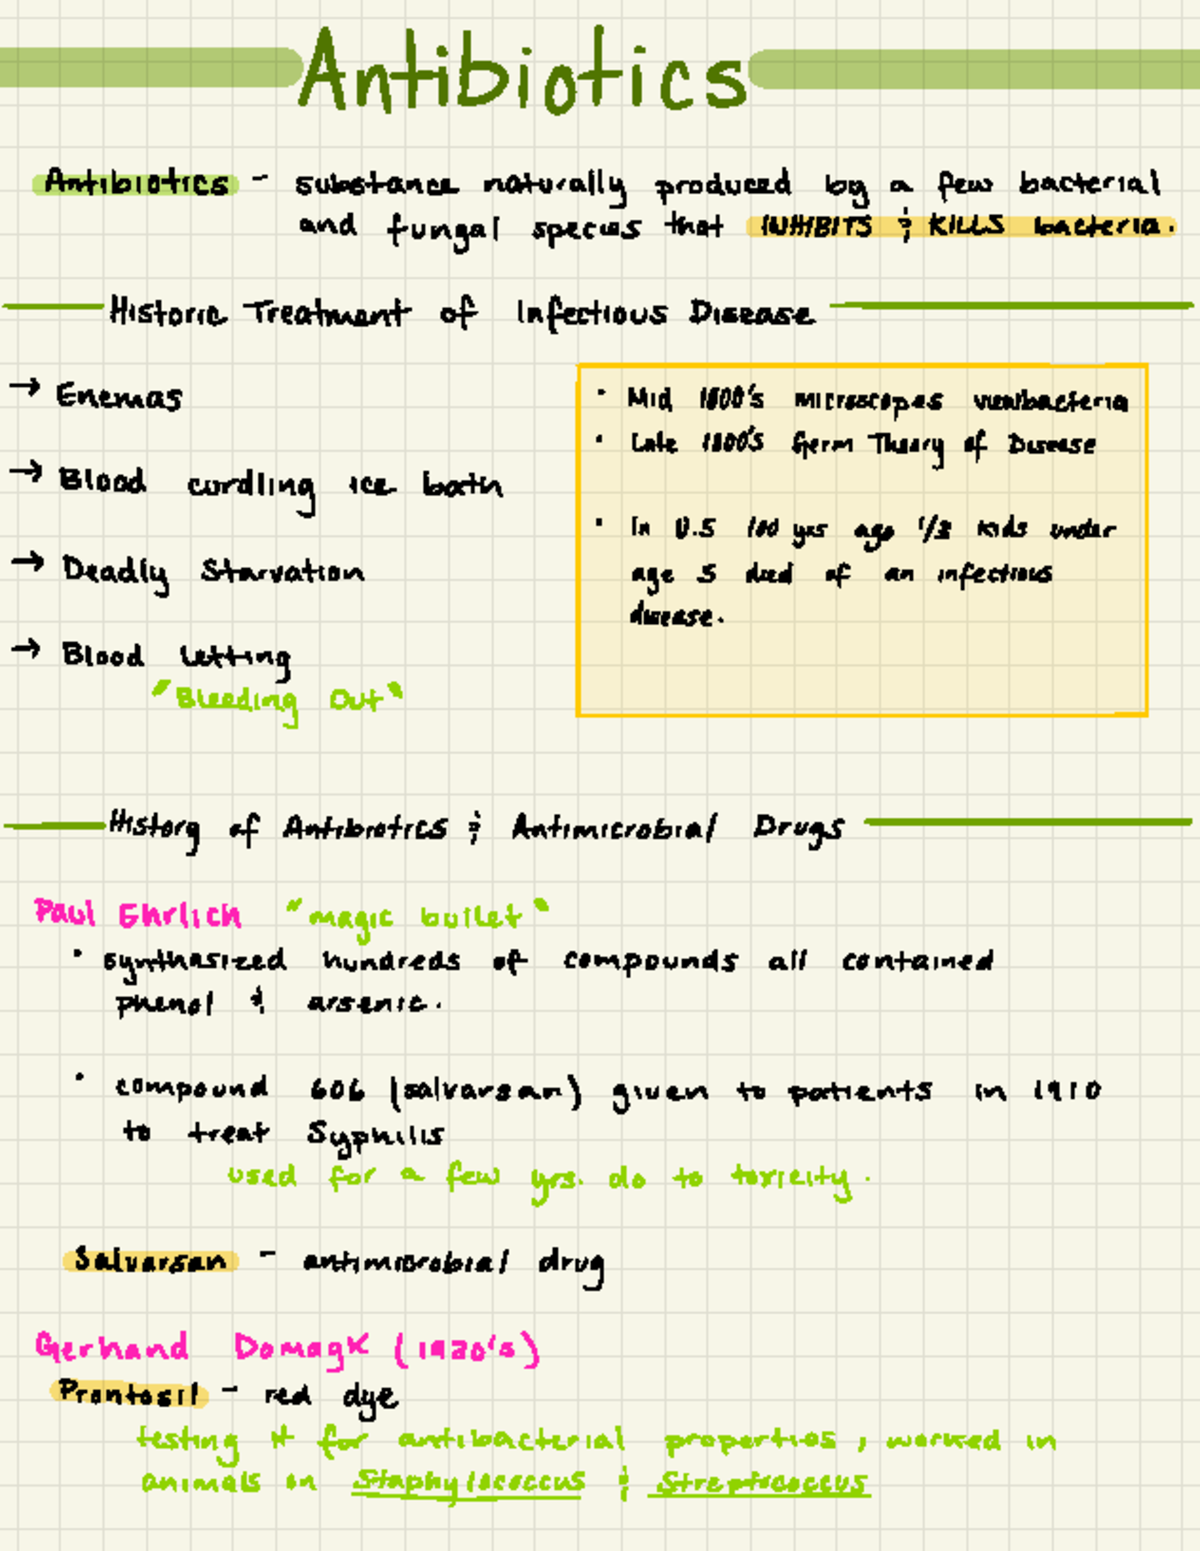 Antibiotics
Antibiotics - substance naturally produced by a few bacterial
and fungal species that INHIBITS & KILLS bacteria.
Historic Treatment of Infectious Disease
→ Enemas
→ Blood curdling ice bath
→ Deadly Starvation
→ Blood letting
"Bleeding Out"
• Mid 1800's microscopes view bacteria
• Late 1800's Germ Theory of Disease
• In U.S 100 yrs ago 1/3 kids under
age 5 died of an infectious
disease.
History of Antibiotics & Antimicrobial Drugs
Paul Ehrlich "magic bullet"
• synthasized hundreds of compounds all contained
phenol & arsenic.
• compound 606 (salvarsan) given to patients in 1910
to treat Syphilis
used for a few yrs. do to toxicity.
Salvarsan - antimicrobial drug
Gerhand Domagk (1930's)
Prontosil - red dye
testing it for antibacterial properties, worked in
animals on Staphylococcus & Streptococcus